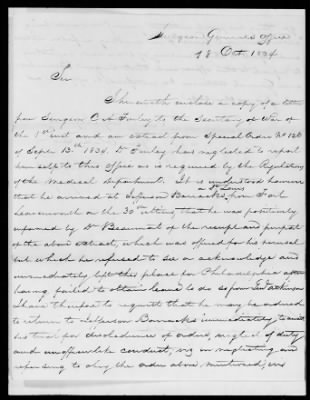 Surgeon General's Office
28 Oct. 1834
Sir
I herewith enclose a copy of a letter
from Surgeon C A Finley to the Secretary of War of
the 1st inst and an extract from Special Order No
of Sept. 13th 1834. Dr Finley has neglected to report
himself to this Office as is required by the Regulations
of the Medical Department. It is understood however
that he arrived at Jefferson Barracks from Fort
St Louis
Leavenworth on the 30th ultimo, that he was positively
informed by Dr Beaumont of the receipt and purport
of the above extract, which was offered for his perusal
but which he refused to see or acknowledge and
immediately left this place for Philadelphia after
having failed to obtain leave to do so from Genl Atkinson
I have therefore to request that he may be ordered
to return to Jefferson Barracks immediately, to await
his trial for disobedience of orders, neglect of duty
and unofficerlike conduct, viz in neglecting and
refusing to obey the order above mentioned, in